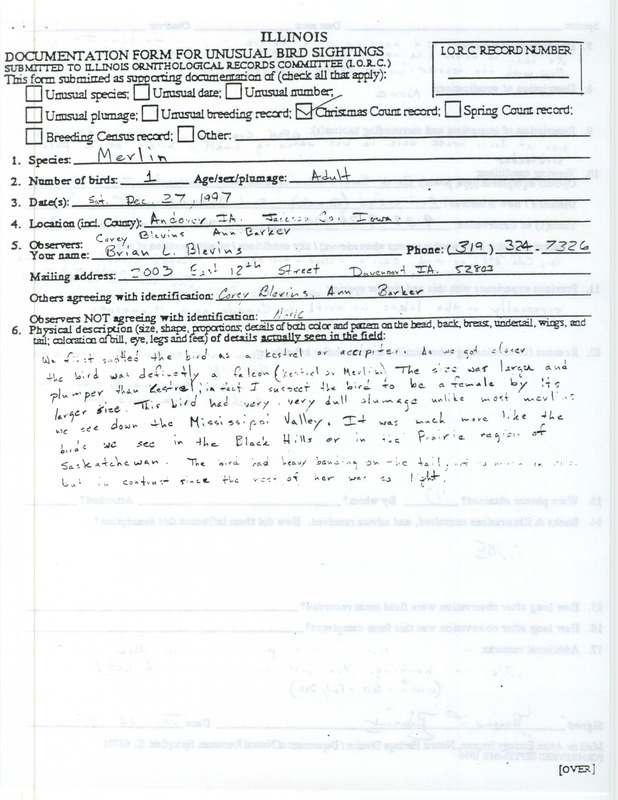 ILLINOIS
DOCUMENTATION FORM FOR UNUSUAL BIRD SIGHTINGS
SUBMITTED TO ILLINOIS ORNITHOLOGICAL RECORDS COMMITTEE (I.O.R.C.)
I.O.R.C. RECORD NUMBER
This form submitted as supporting documentation of (check all that apply):
Unusual species; Unusual date; Unusual number;
Unusual plumage; Unusual breeding record; Christmas Count record; Spring Count record;
Breeding Census record; Other:
1. Species: Merlin
2. Number of birds: 1 Age/sex/plumage: Adult
3. Date(s): Sat. Dec. 27, 1997
4. Location (incl. County): Andover IA. Jackson Co. Iowa
5. Observers: Corey Blevins Ann Barker
Your name: Brian L. Blevins Phone: (319) 324-7326
Mailing address: 2003 East 12th Street Davenport IA. 52803
Others agreeing with identification: Corey Blevins, Ann Barker
Observers NOT agreeing with identification:
6. Physical description (size, shape, proportions; details of both color and pattern on the head, back, breast, undertail, wings, and
tail; coloration of bill, eye, legs and feet) of details actually seen in the field:
We first spotted the bird as a kestrel or accipiter. As we got closer
the bird was definetly a falcon (kestrel or Merlin) The size was large and
plumper than kestrel; in fact I suspect the bird to be a female by its
larger size. This bird had very, very dull plumage unlike most merlins
we see down the Mississippi Valley. It was much more like the
birds we see in the Black Hills or in the Prairie region of
Saskatchewan. The bird had heavy banding on the tail,
but in contrast since the rest of her was so light.
[OVER]